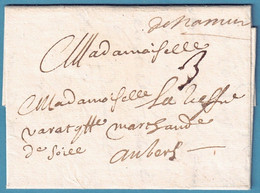 de Namur
Madamoiselle
3
Madamoiselle La vefve
marchande
de soiee
anbers